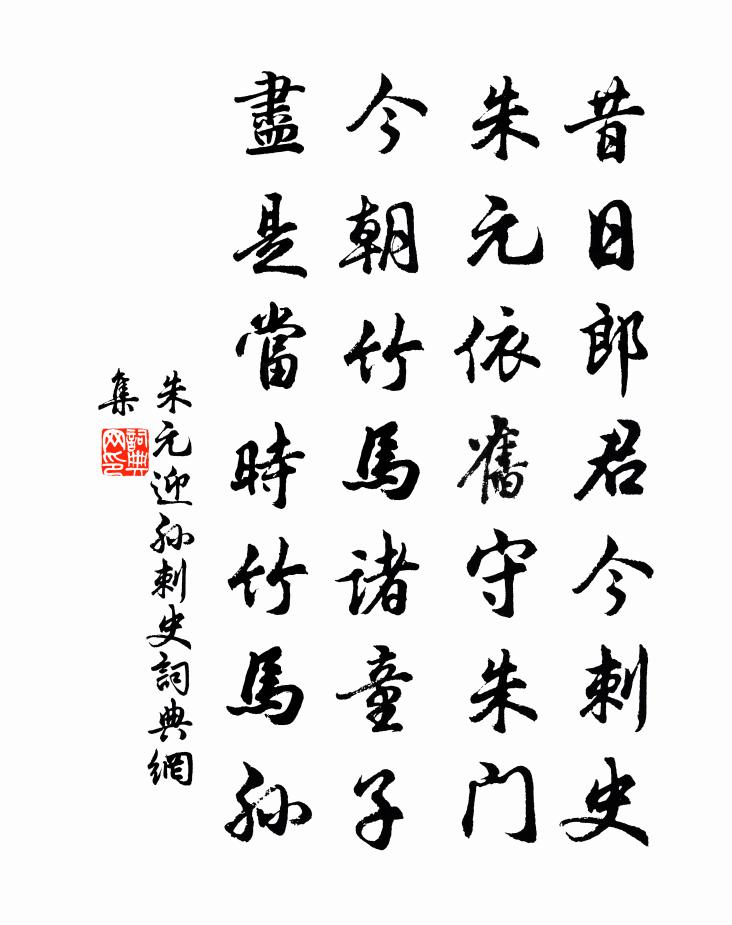 昔日郎君今刺史
朱元依舊守朱门
今朝竹馬諸童子
盡是當時竹馬孙
朱元迎孙刺史詞典網
集
詞典
网印